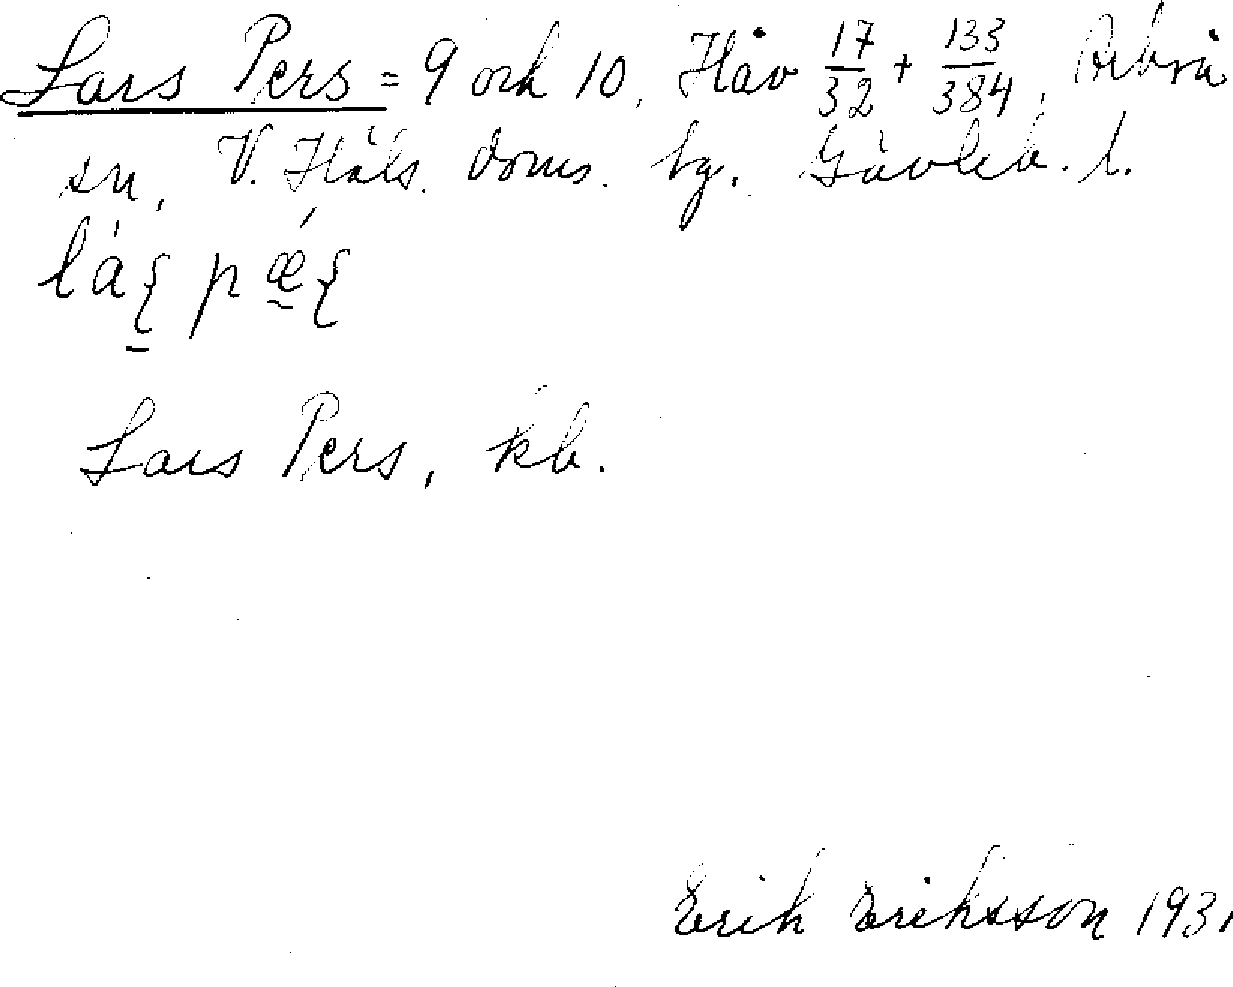 Lars Pers = 9 och 10, Håv 17/32 + 133/384, Arbrå
sn, V. Häls. doms. bg. Gävleb. l.
Lars Pers, kb.
Erik Eriksson 1931